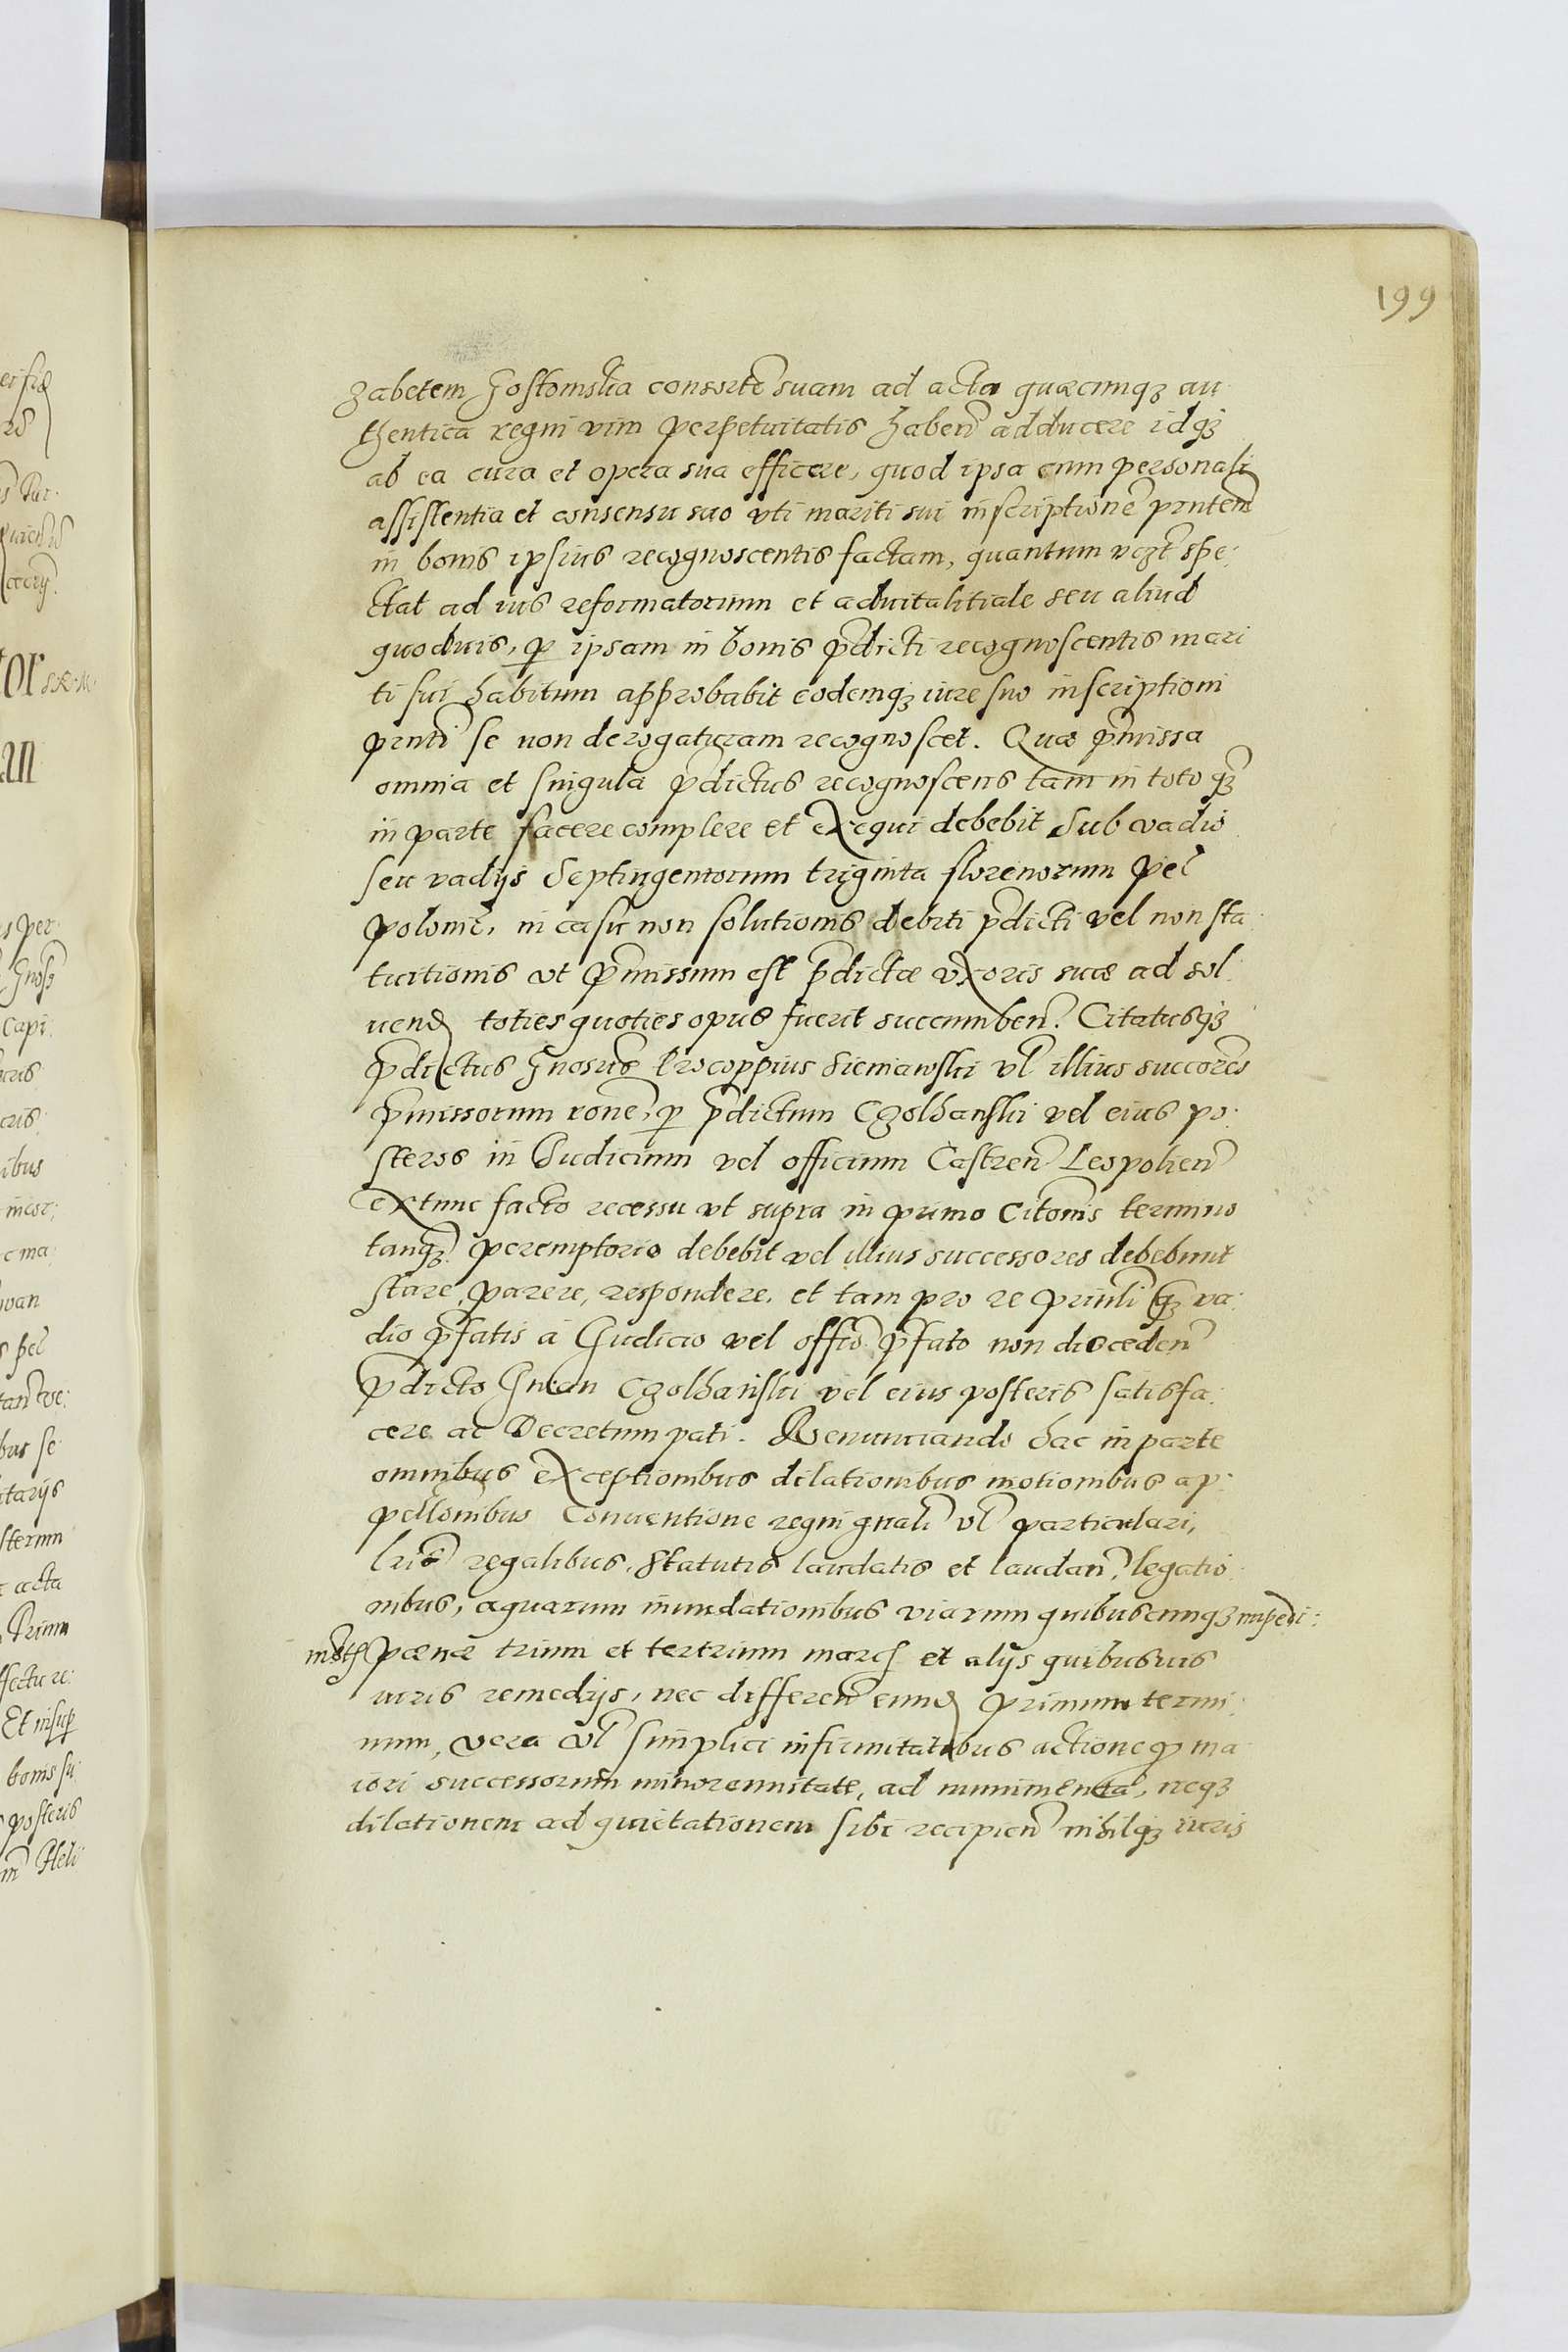 199
zabetem Gostomska consorte suam ad acta quæcunqz au
thentica regni vim perpetuitatis haben adducere idqz
ab ea cura et opera sua efficere, quod ipsa cum personali
assistentia et consensu suo vti mariti sui inscriptione prntem
in bonis ipsius recognoscentis factam, quantum vczt spe:
ctat ad ius reformatorium et aduitalitiale seu aliud
quoduis, p ipsam in bonis pdicti recognoscentis mari
ti sui habitum approbabit eodemqz iure suo inscriptioni
prnti se non derogaturam recognoscet. Quæ pmissa
omnia et singula pdictus recognoscens tam in toto qz
in parte facere complere et exequi debebit Sub vadio
seu vadijs Septingentorum triginta florenorum pel
polonic, in casu non solutionis debiti pdicti vel non sta
tuitionis vt pmissum est pdictæ vxoris suæ ad sol
uend toties quoties opus fuerit succumben. Citatusqz
pdictus Gnosus Procoppius Sieniawski vl illius succores
pmissorum rone, p pdictum Czolhanski vel eius po:
steros in Iudicium vel officium Castren Leopolien
extunc facto recessu vt supra in primo Citonis termino
tanqz peremptorio debebit vel illius successores debebunt
stare, parere, respondere, et tam pro re prinli qz va:
dio pfatis à Iudicio vel offio pfato non disceden
pdicto Iwan Czolhanski vel eius posteris satisfa:
cere ac Decretum pati. Renunciando hac in parte
omnibus exceptionibus dilationibus motionibus ap:
pellonibus Conuentione regni gnali vl particulari,
lris regalibus, Statutis laudatis et laudan, legatio
nibus, aquarum inundationibus viarum quibuscunqz impedi:
mtis pænæ trium et tertrium marc et alijs quibusuis
iuris remedijs, nec differen eund primum termi:
num, vera vl simplici infirmitatibus actione p ma
iori successorum minorennitate, ad munimenta, neqz
dilationem ad quietationem sibi recipien nihilqz iuris